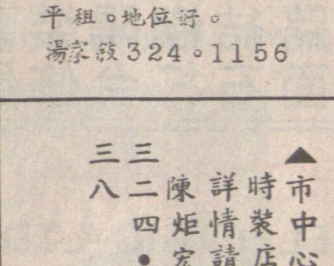 平租。地位好。
湯家毅324。1156
▲市中心
時裝店
詳情請
陳炬宏
三二四●
三八